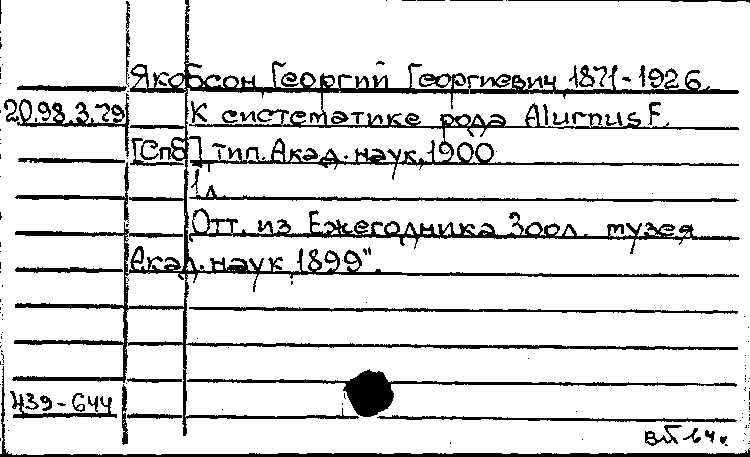 Якобсон, Георгий Георгиевич, 1871-1926.
20.98.3.79 К систематике рода Alurnus F.
[Спб], тип. Акад. наук, 1900
1 л.
Отт. из Ежегодника Зоол. музея
Акад. наук, 1899".
439-644